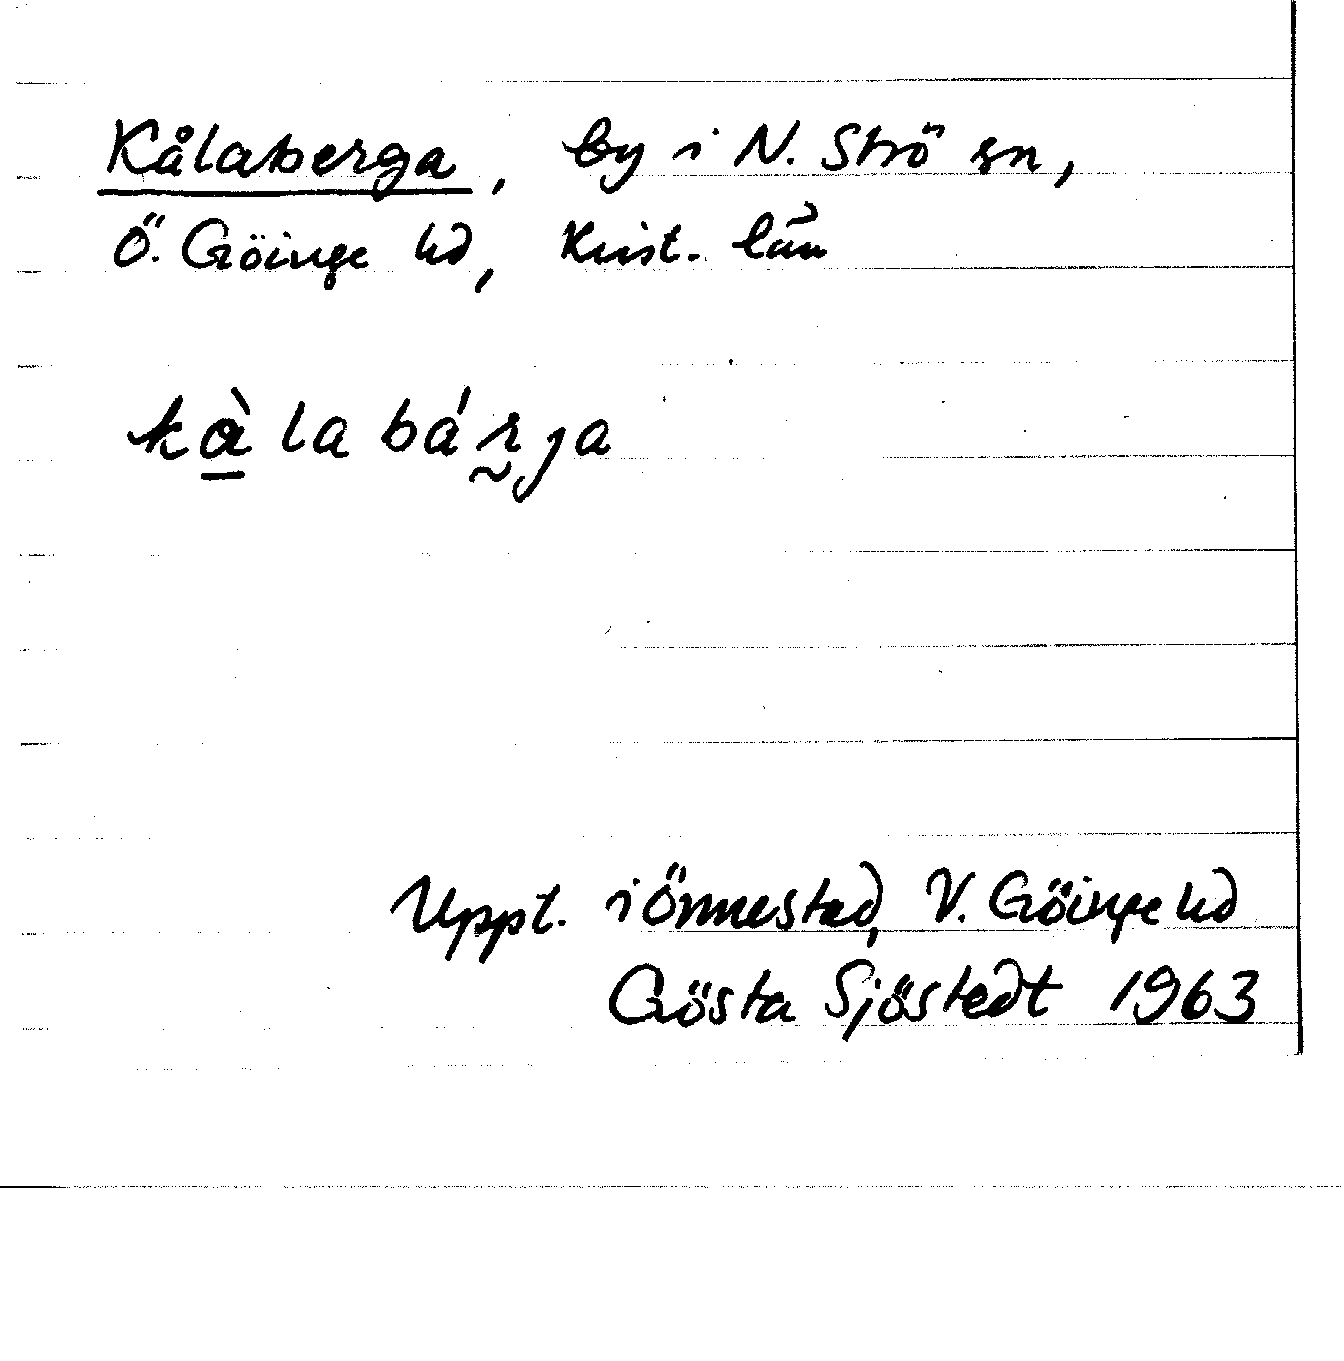 Kålaberga, by i N. Strö sn,
Ö. Göinge hd, Krist. län
kàlabárja
Uppt. i Önnestad, V. Göinge hd
Gösta Sjöstedt 1963